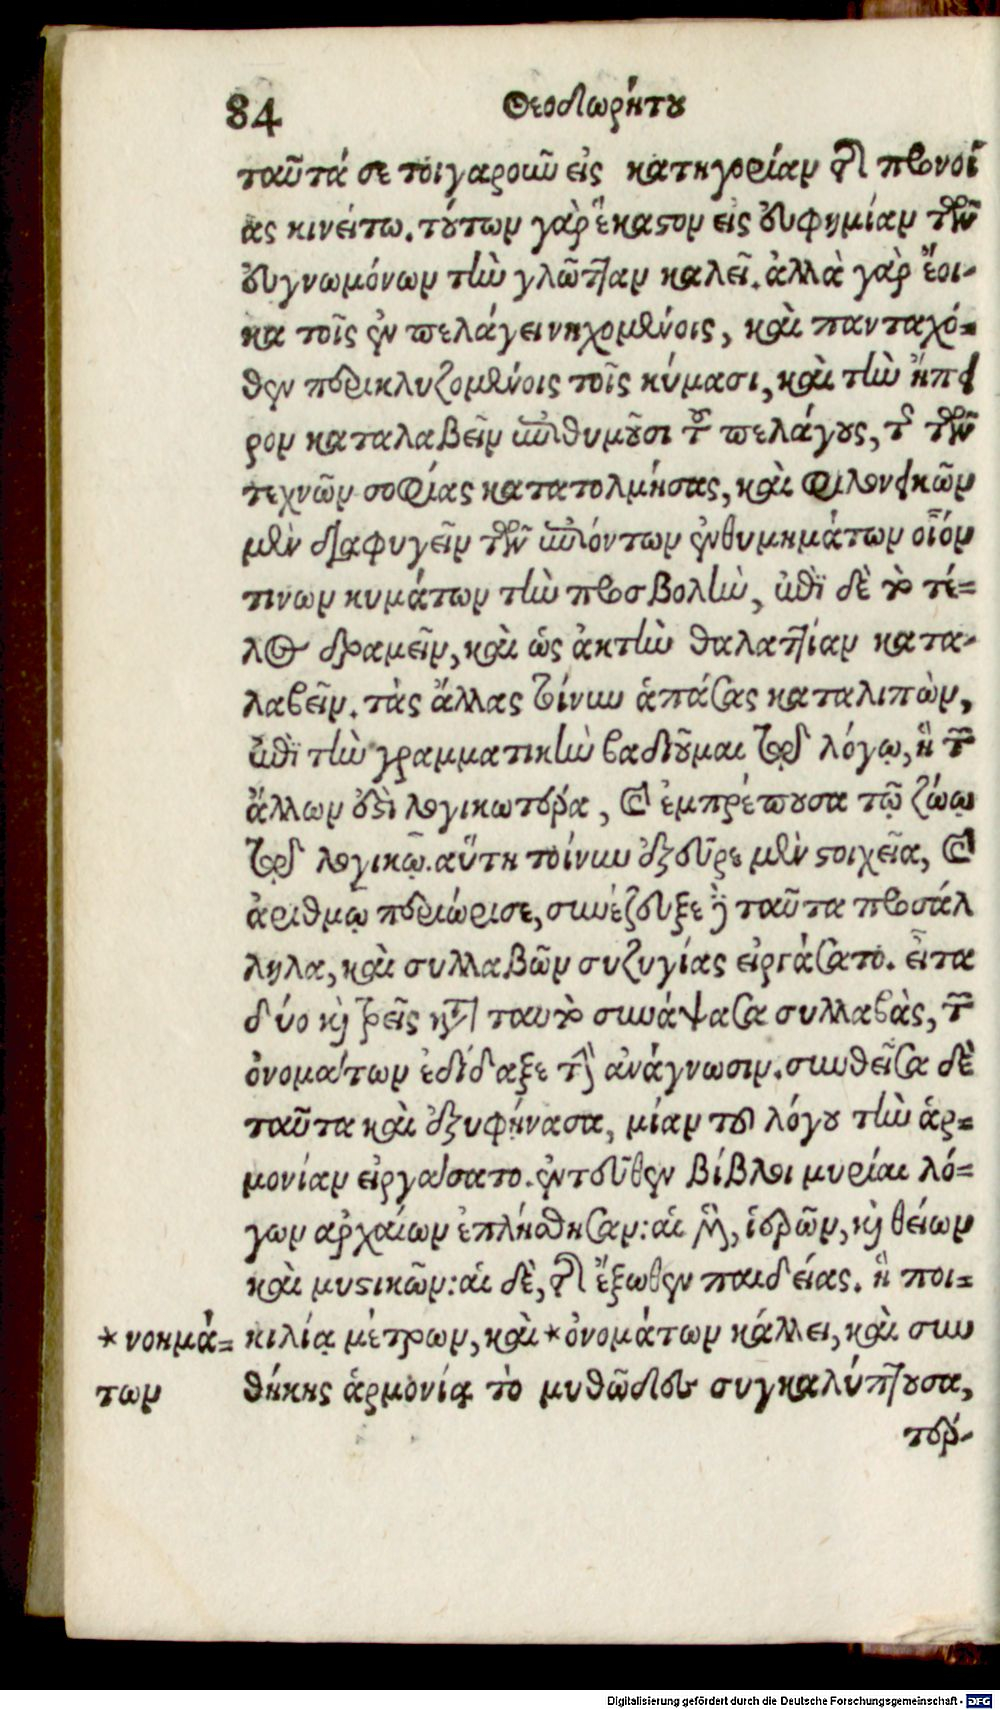 84 Θεοδωρήτου
ταῦτά σε τοιγαροῦν εἰς κατηγορίαν τῆς προνοί
ας κινείτω. τούτων γὰρ ἕκαστον εἰς εὐφημίαν τῶν
εὐγνωμόνων τὴν γλῶτταν καλεῖ. ἀλλὰ γὰρ ἔοι-
κα τοῖς ἐν πελάγει νηχομένοις, καὶ πανταχό-
θεν περικλυζομένοις τοῖς κύμασι, καὶ τὴν ἤπει
ρον καταλαβεῖν ἐπιθυμοῦσι τοῦ πελάγους, τὸ τῶν
τεχνῶν σοφίας κατατολμήσας, καὶ φιλονεικῶν
μὲν διαφυγεῖν τῶν ἐπιόντων ἐνθυμημάτων οἷόν
τινων κυμάτων τὴν προσβολὴν, ἐπὶ δὲ τὸ τέ-
λος δραμεῖν, καὶ ὡς ἀκτὴν θαλαττίαν κατα-
λαβεῖν. τὰς ἄλλας τοίνυν ἁπάσας καταλιπὼν,
ἐπὶ τὴν γραμματικὴν βαδιοῦμαι τῷ λόγῳ, ἣ τῶν
ἄλλων ἐστὶ λογικωτέρα, καὶ ἐμπρέπουσα τῷ ζώῳ
τῷ λογικῷ. αὕτη τοίνυν ἐξεῦρε μὲν στοιχεῖα, καὶ
ἀριθμῷ περιώρισε, συνέζευξε δὲ ταῦτα προσάλ
ληλα, καὶ συλλαβῶν συζυγίας εἰργάσατο. εἶτα
δύο καὶ τρεῖς κατὰ ταυτὸ συνάψασα συλλαβὰς, τῶν
ὀνομάτων ἐδίδαξε τὴν ἀνάγνωσιν. συνθεῖσα δὲ
ταῦτα καὶ ἐξυφήνασα, μίαν τοῦ λόγου τὴν ἁρ-
μονίαν εἰργάσατο. ἐντεῦθεν βίβλοι μυρίαι λό-
γων ἀρχαίων ἐπλήσθησαν: αἱ μὲν, ἱερῶν, καὶ θείων
καὶ μυστικῶν: αἱ δὲ, τῆς ἔξωθεν παιδείας. ἣ ποι-
κιλίᾳ μέτρων, καὶ *ὀνομάτων κάλλει, καὶ συν
θήκης ἁρμονίᾳ τὸ μυθῶδες συγκαλύπτουσα,
* νοημά-
των
τέρ-
Digitalisierung gefördert durch die Deutsche Forschungsgemeinschaft - DFG